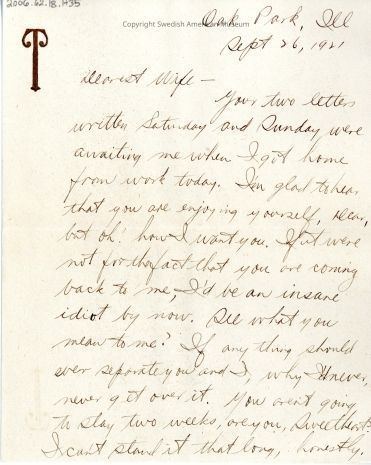 2006.62.18.H35
Copyright Swedish American Museum
T
Oak Park, Ill
Sept 26, 1921
Dearest Wife —
Your two letters
written Saturday and Sunday, were
awaiting me when I got home
from work today. I'm glad to hear
that you are enjoying yourself, dear,
but oh! how I want you. If it were
not for the fact that you are coming
back to me, I'd be an insane
idiot by now. See what you
mean to me? If any thing should
ever seperate you and I, why I'd never,
never get over it. You aren't going
to stay two weeks, are you, Sweetheart?
I can't stand it that long, honestly.